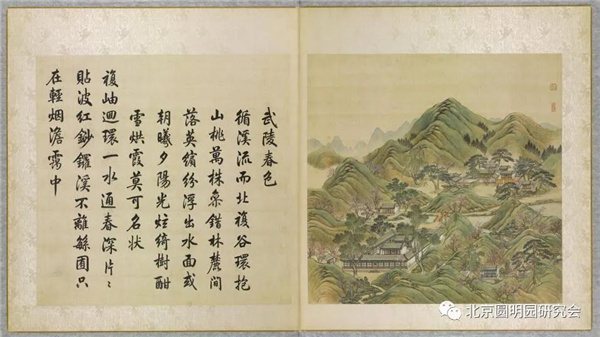 武陵春色
循溪流而北復谷環抱
山桃萬株叅錯林麓間
落英繽紛浮出水面或
朝曦夕陽光炫綺樹酣
雪烘霞莫可名狀
複岫迴環一水通春深片〻
貼波紅鈔鑼溪不離繇囿只
在輕烟澹靄中
北京圓明园研究会